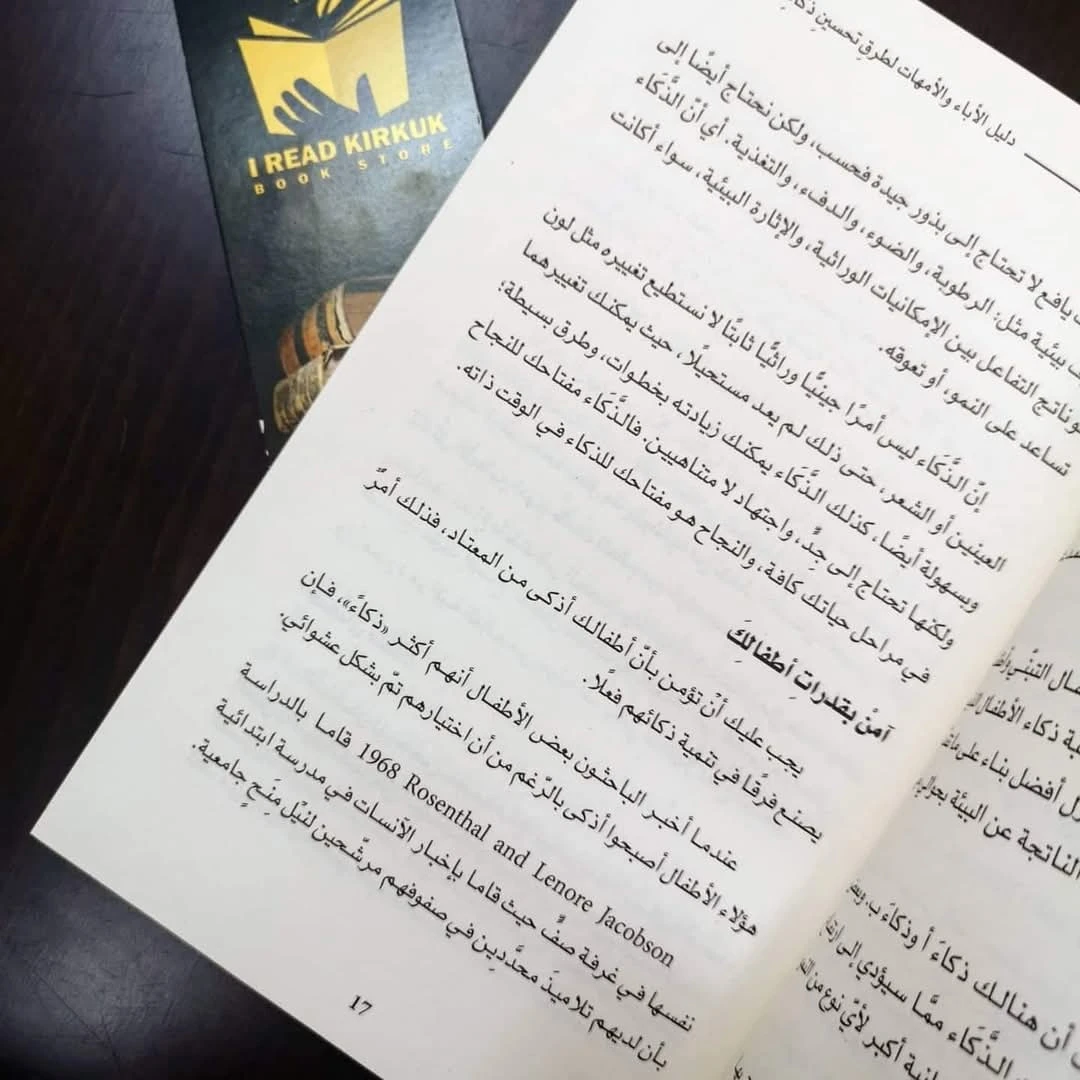 I READ KIRKUK
BOOK STORE
دليل الأباء والأمهات لطرق تحسين
يافع لا تحتاج إلى بذور جيدة فحسب، ولكن نحتاج أيضًا إلى
بيئية مثل: الرطوبة، والضوء، والدفء، والتغذية. أي أنّ الذَّكَاء
ناتج التفاعل بين الإمكانيات الوراثية، والإثارة البيئية، سواء أكانت
تساعد على النمو، أو تعوقه.
إنّ الذَّكَاء ليس أمرًا جينيًّا وراثيًّا ثابتًا لا نستطيع تغييره مثل لون
العينين أو الشعر، حتى ذلك لم يعد مستحيلًا، حيث يمكنك تغييرهما
وبسهولة أيضًا، كذلك الذَّكَاء يمكنك زيادته بخطوات، وطرق بسيطة؛
ولكنها تحتاج إلى جِدٍّ، واجتهاد لا متناهيين. فالذَّكَاء مفتاحك للنجاح
في مراحل حياتك كافة، والنجاح هو مفتاحك للذكاء في الوقت ذاته.
آمنْ بقدراتِ أطفالكَ
يجب عليك أنْ تؤمن بأنّ أطفالك أذكى من المعتاد، فذلك أمرٌ
يصنع فرقًا في تنمية ذكائهم فعلًا.
عندما أخبر الباحثون بعض الأطفال أنهم أكثر «ذكاءً»، فإن
هؤلاء الأطفال أصبحوا أذكى بالرّغم من أن اختيارهم تمّ بشكل عشوائي.
1968 Rosenthal and Lenore Jacobson قاما بالدراسة
نفسها في غرفة صفٍّ حيث قاما بإخبار الآنسات في مدرسة ابتدائية
بأن لديهم تلاميذَ محدَّدِين في صفوفهم مرشّحين لنَيْل مِنَحٍ جامعية.
17
ذكاء الأطفال
أفضل بناء على
الناتجة عن البيئة
أن هنالك ذكاءَ أ وذكاءَ ب.
الذَّكَاء ممَّا سيؤدي إلى
أكبر لأيّ نوع من